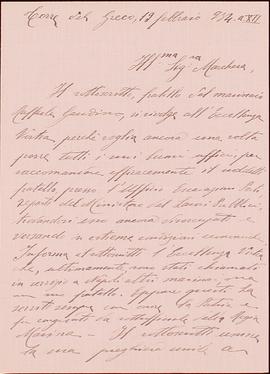 Torre del Greco, 13 febbraio 934. a. XII
Ill.ma Sig.ra Marchesa,
Il sottoscritto, fratello del marinaio
Raffaele Gaudino, si rivolge all'Eccellenza
Vostra, perché voglia ancora una volta
porre tutti i suoi buoni uffici, per
raccomandare efficacemente il suddetto
fratello presso l'Ufficio Escavazioni Porti
reparti del Ministero dei Lavori Pubblici,
trovandosi esso ancora disoccupato e
versando in estreme condizioni economiche.
Informa il sottoscritto l'Eccellenza Vostra
che, ultimamente, sono stati chiamati
in servizio a Napoli altri marinai, ma
non mio fratello. Eppure questi ha
servito sempre con amore la Patria e
fu congedato da sottocapo della Regia
Marina - Il sottoscritto unisce
la sua preghiera umile a